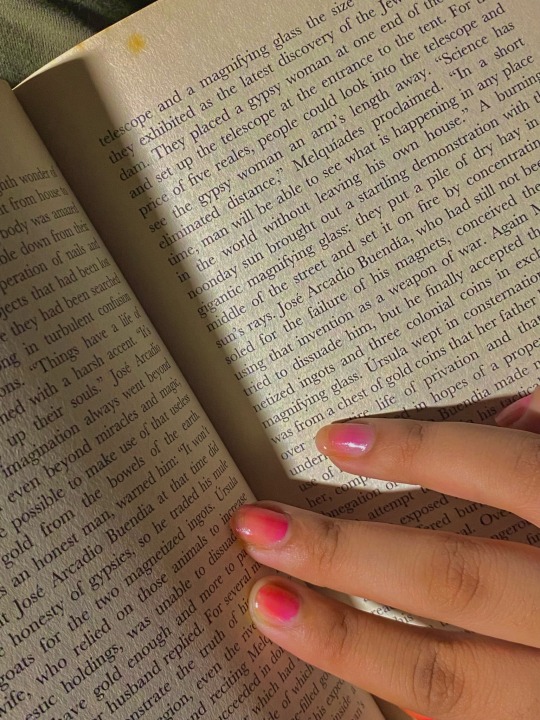 nth wonder of
it from house to
body was amazed
ble down from their
peration of nails and
jects that had been lost
they had been searched
ng in turbulent confusion
ons. "Things have a life of
med with a harsh accent. "It's
up their souls." José Arcadio
imagination always went beyond
even beyond miracles and magic,
possible to make use of that useless
gold from the bowels of the earth.
s an honest man, warned him: "It won't
t José Arcadio Buendía at that time did
honesty of gypsies, so he traded his mule
goats for the two magnetized ingots. Úrsula
wife, who relied on those animals to increase
estic holdings, was unable to dissuade
have gold enough and more to
husband replied. For several
onstrate the truth of
egion, even the
and reciting
succeeded in
which had
of which
filled
his
telescope and a magnifying glass the size
they exhibited as the latest discovery of the Jew
dam. They placed a gypsy woman at one end of the
and set up the telescope at the entrance to the tent. For the
price of five reales, people could look into the telescope and
see the gypsy woman an arm's length away. "Science has
eliminated distance," Melquíades proclaimed. "In a short
time, man will be able to see what is happening in any place
in the world without leaving his own house." A burning
noonday sun brought out a startling demonstration with
gigantic magnifying glass: they put a pile of dry hay in
middle of the street and set it on fire by concentrating
sun's rays. José Arcadio Buendía, who had still not been
soled for the failure of his magnets, conceived the
using that invention as a weapon of war. Again
tried to dissuade him, but he finally accepted the
netized ingots and three colonial coins in exch
magnifying glass. Úrsula wept in consternation
was from a chest of gold coins that her father
over life of privation and that
under in hopes of a prope
use of Buendía made
her, comp his tactic
negation of
attempt
exposed
ered burn
Over
angerous